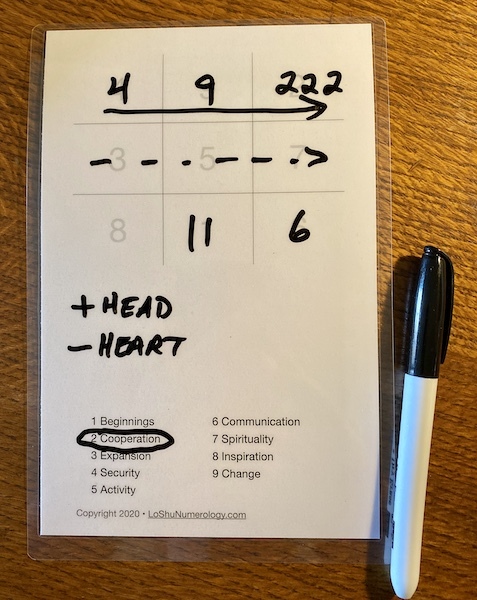 4 9 222
3 5 7
8 11 6
+ HEAD
- HEART
1 Beginnings 6 Communication
2 Cooperation 7 Spirituality
3 Expansion 8 Inspiration
4 Security 9 Change
5 Activity
Copyright 2020 • LoShuNumerology.com